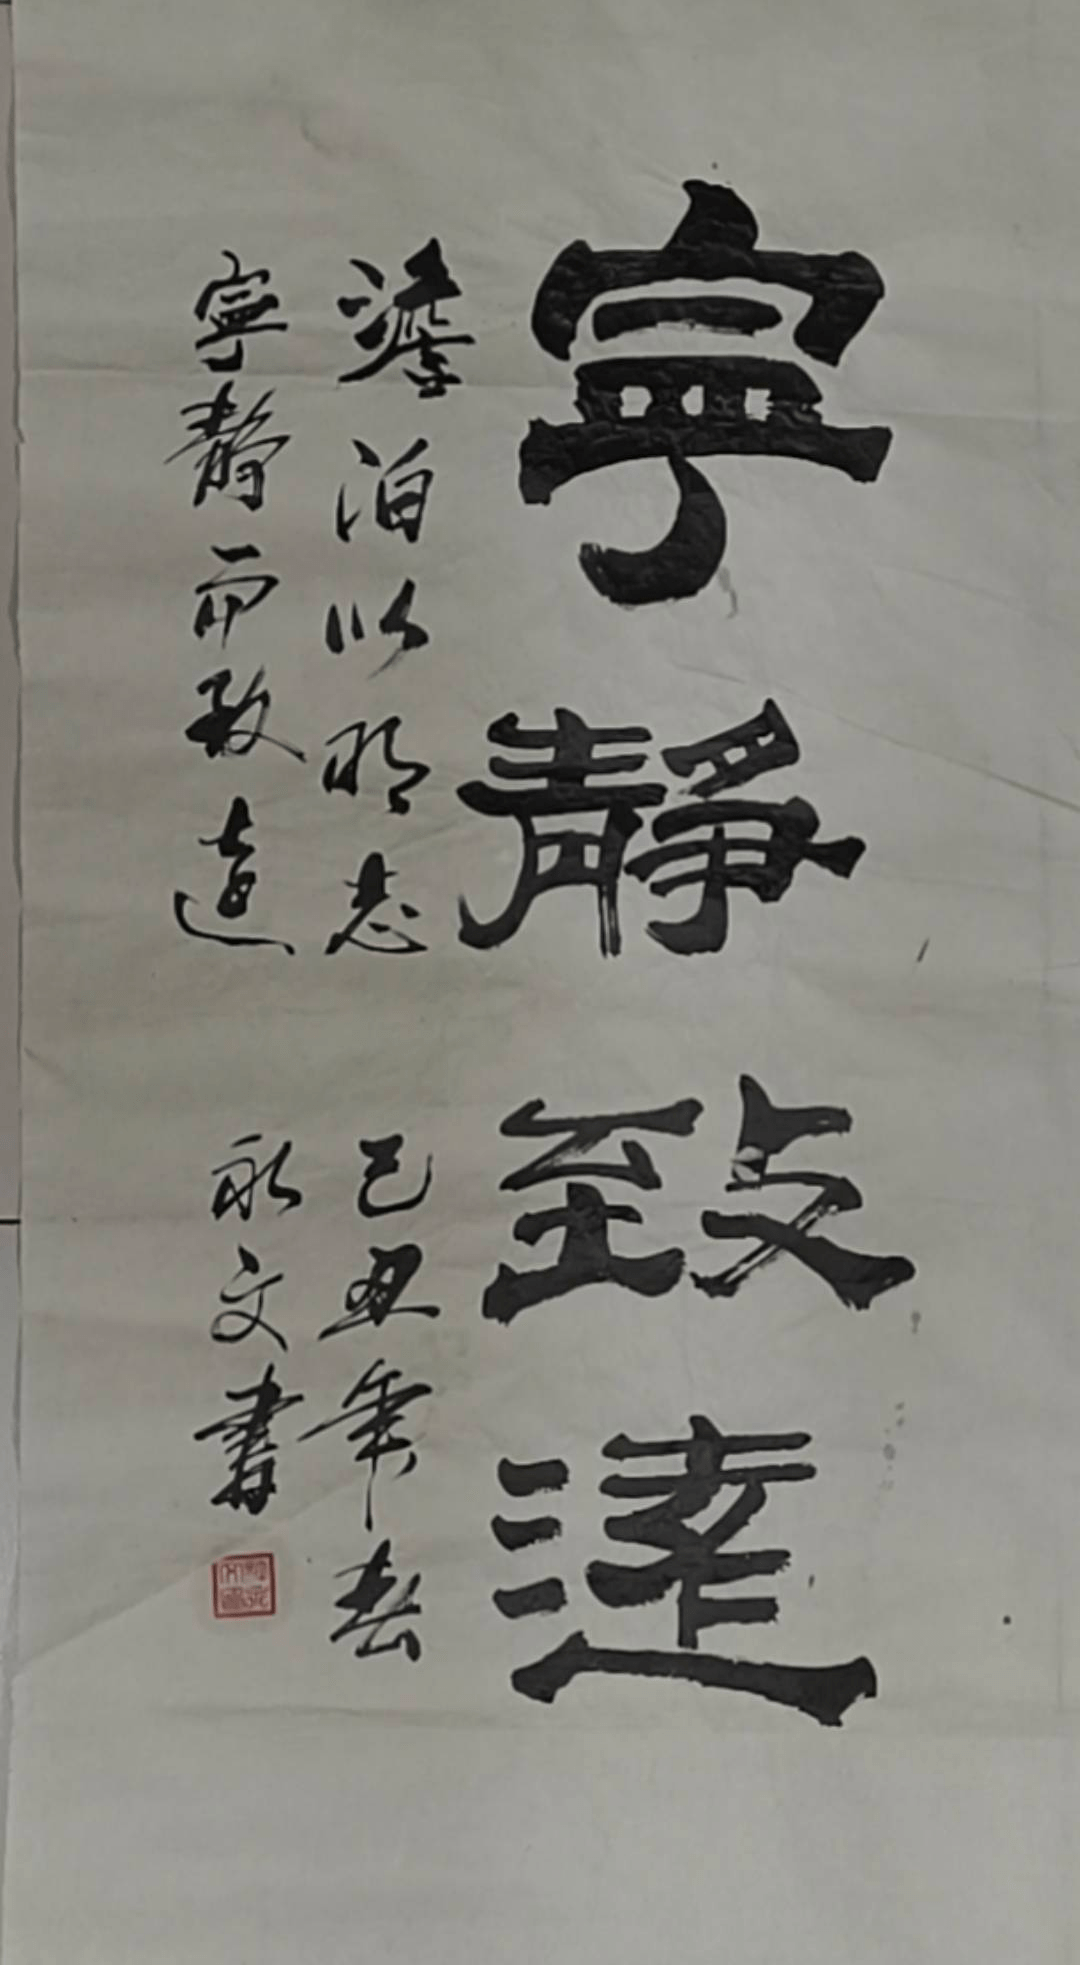 寧靜致遠
澹泊以明志
己丑年春
寧靜而致遠
永文書